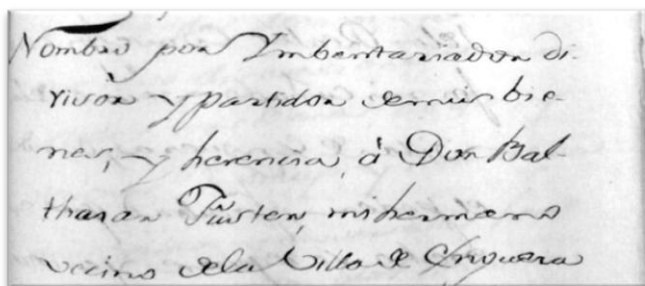 Nombro por Imbentariador di-
visòr y partidor demis bie-
nes, y herencia, à Don Bal-
thasar Füster, mi hermano
vecino dela Villa de Enguera